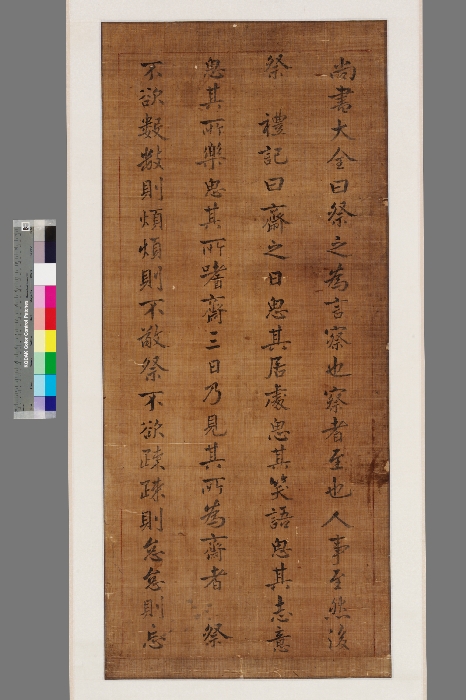 尚書大全曰祭之為言察也察者至也人事至然後
祭 禮記曰齋之日思其居處思其笑語思其志意
思其所樂思其所嗜齋三日乃見其所為齋者 祭
不欲數數則煩煩則不敬祭不欲踈踈則怠怠則忘
KODAK Color Control Patches